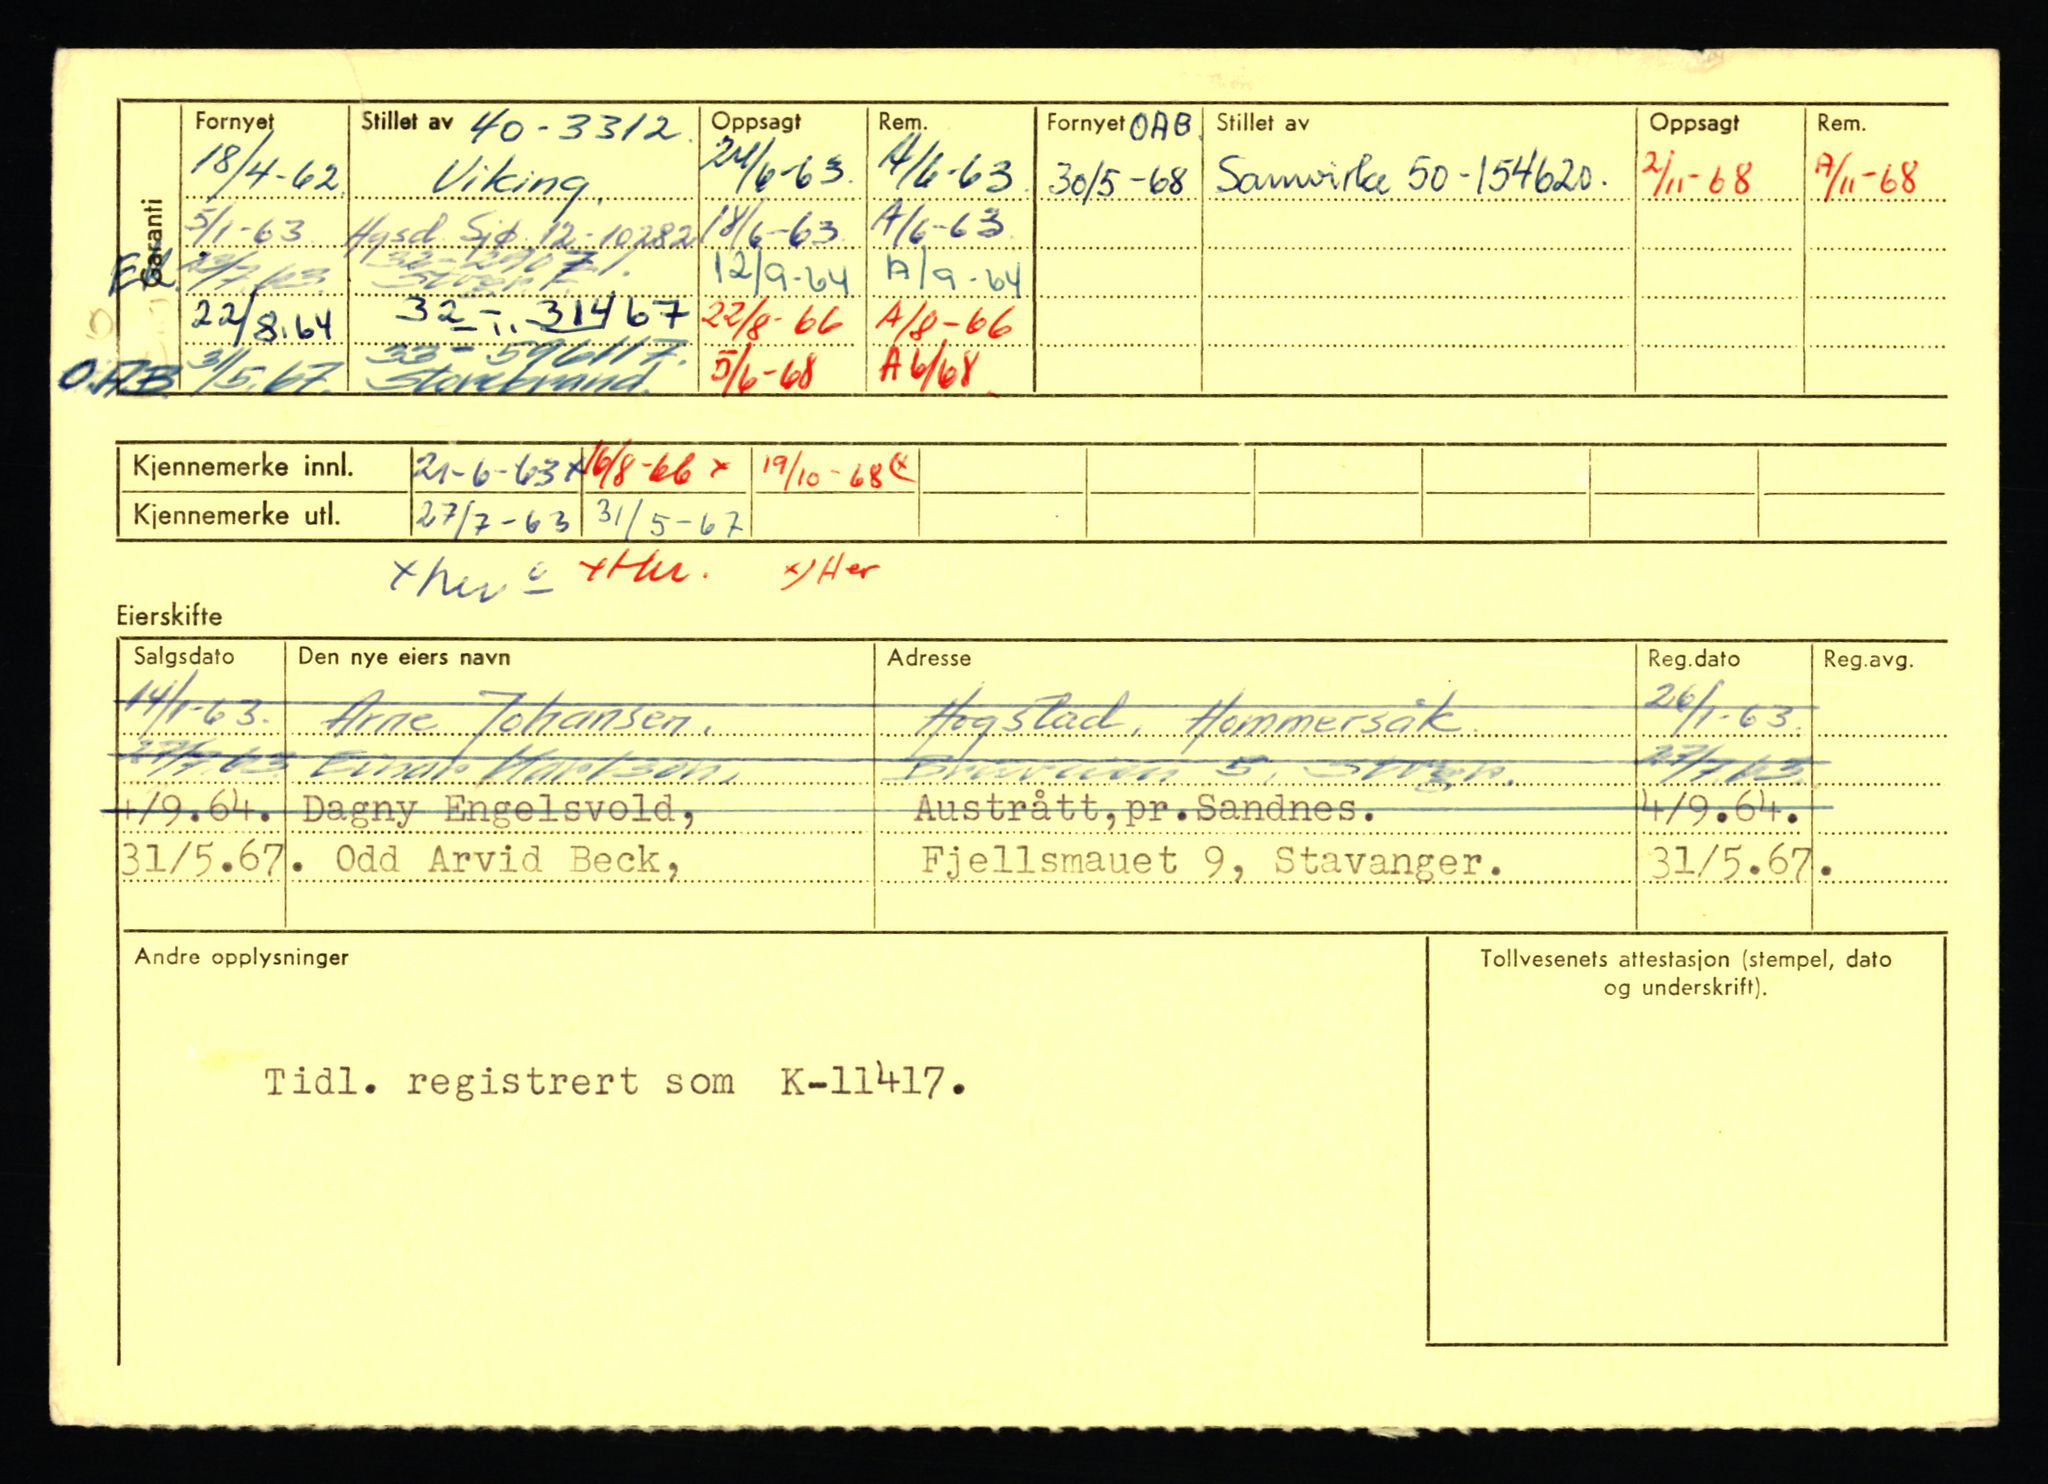 Garanti
Fornyet Stillet av 40-3312. Oppsagt Rem. Fornyet OAB. Stillet av Oppsagt Rem.
18/4-62. Viking. 24/6-63. A/6-63. 30/5-68 Samvirke 50-154620. 2/11-68 A/11-68
5/1-63. Hgsd. Sjø. 12-10282 18/6-63. A/6-63.
12/9-64 A/9-64
22/8.64 32- 31467 22/8-66 A/8-66
O.A.B. 31/5.67. 33-596117. Storebrand. 5/6-68 A 6/68.
Kjennemerke innl. 21-6-63 x 16/8-66 x 19/10-68 (x
Kjennemerke utl. 27/7-63 31/5-67
x her x Her. x) Her
Eierskifte
Salgsdato Den nye eiers navn Adresse Reg.dato Reg.avg.
14/1-63. Arne Johansen. Hogstad, Hommersåk. 26/1-63.
27/7.63 Einar 5, 27/7 63.
4/9.64. Dagny Engelsvold, Austrått,pr.Sandnes. 4/9.64.
31/5.67. Odd Arvid Beck, Fjellsmauet 9, Stavanger. 31/5.67.
Andre opplysninger
Tollvesenets attestasjon (stempel, dato
og underskrift).
Tidl. registrert som K-11417.